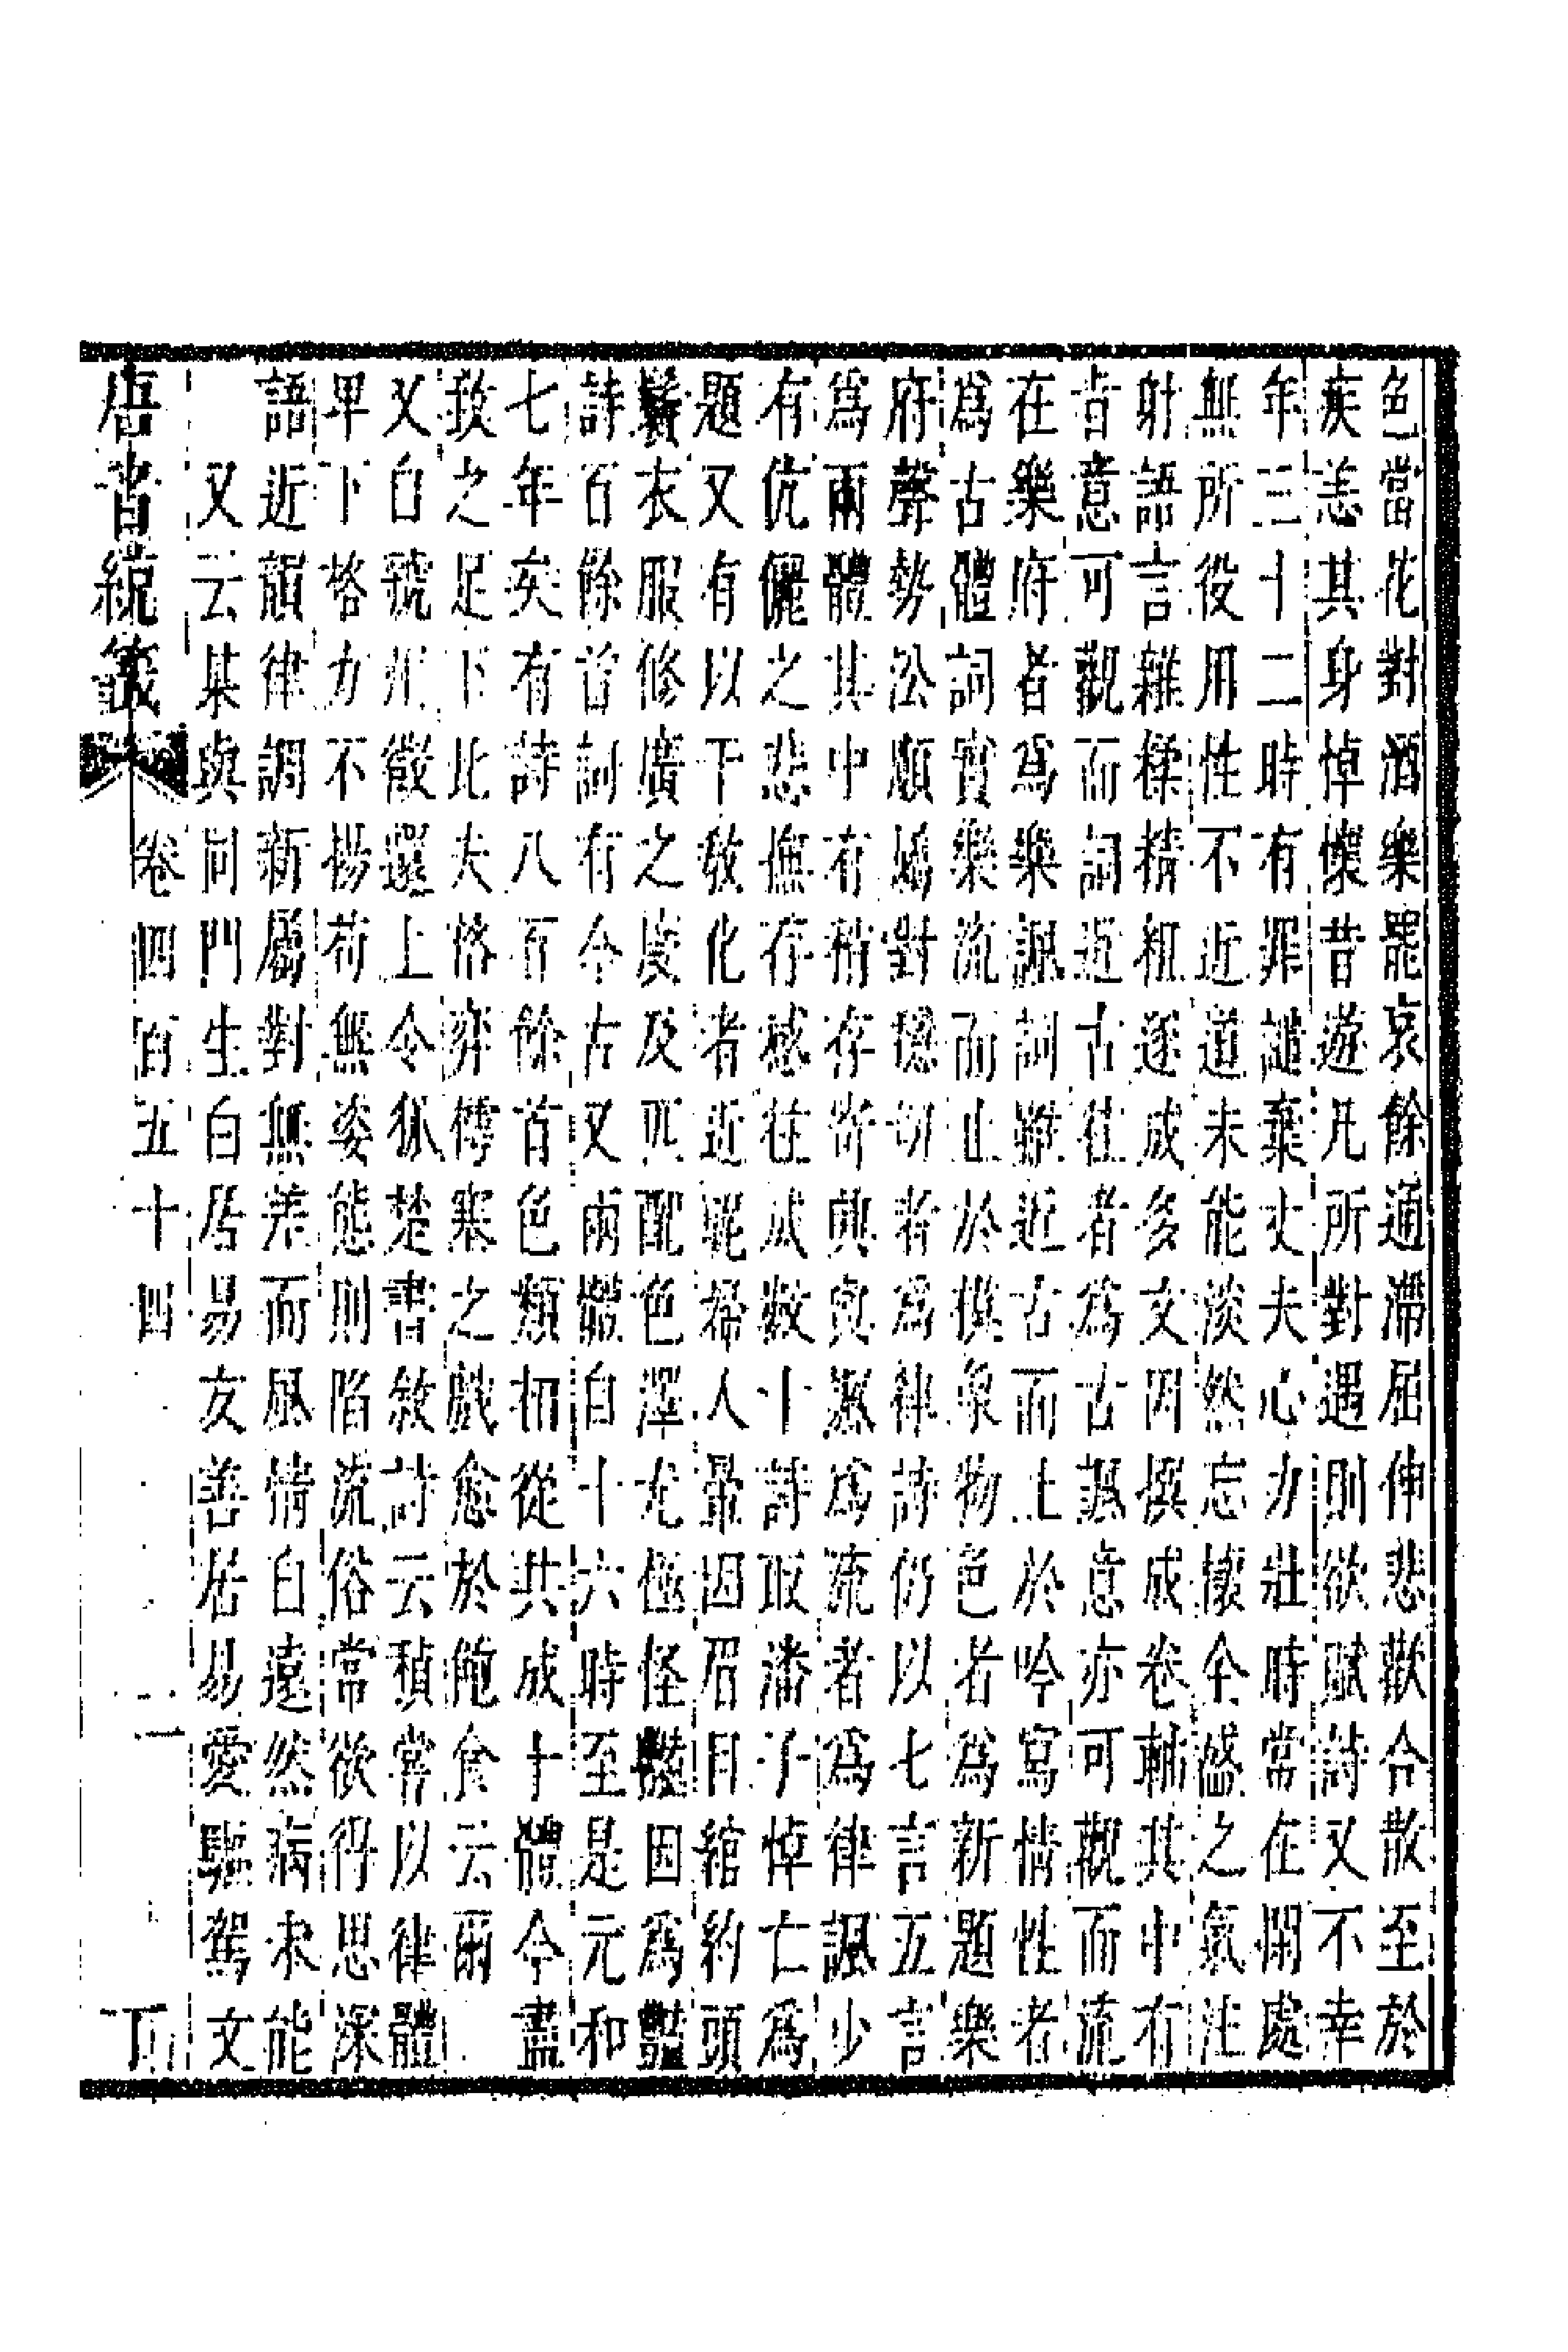 色當花對酒樂罷哀餘通滯屈伸悲歡合散至於
疾恙其身悼懷昔遊凡所對遇則欲賦詩又不幸
年三十二時有罪譴棄丈夫心力壯時常在閒處
無所役用性不近道未能淡然忘懷全盛之氣注
射語言雜糅精粗遂成多文因撰成卷輔其中有
旨意可觀而詞近古往者為古諷意亦可觀而流
在樂府者為樂諷詞雖近古而止於吟寫情性者
為古體詞實樂流而止於模象物色者為新題樂
府聲勢㳂順屬對穩切者為律詩仍以七言五言
為兩體其中有稍存寄興與諷為流者為律諷少
有伉儷之悲撫存感往成數十詩取潘子悼亡為
題又有以干教化者近昵婦人暈因眉目綰約頭
鬢衣服修廣之度及匹配色澤尤極怪豔因為豔
詩百餘首詞有今古又兩體自十六時至是元和
七年矣有詩八百餘首色類相從共成十體今盡
致之足下此夫格弈樗塞之戲愈於飽食云爾
又白虢州徵還上令狐楚書敘詩云積常以律體
卑下格力不揚苟無姿態則陷流俗常欲得思深
語近韻律調新屬對無差而風情自遠然病未能
又云某與同門生白居易友善居易愛驅駕文
唐書統籤　卷四百五十四　二　丁